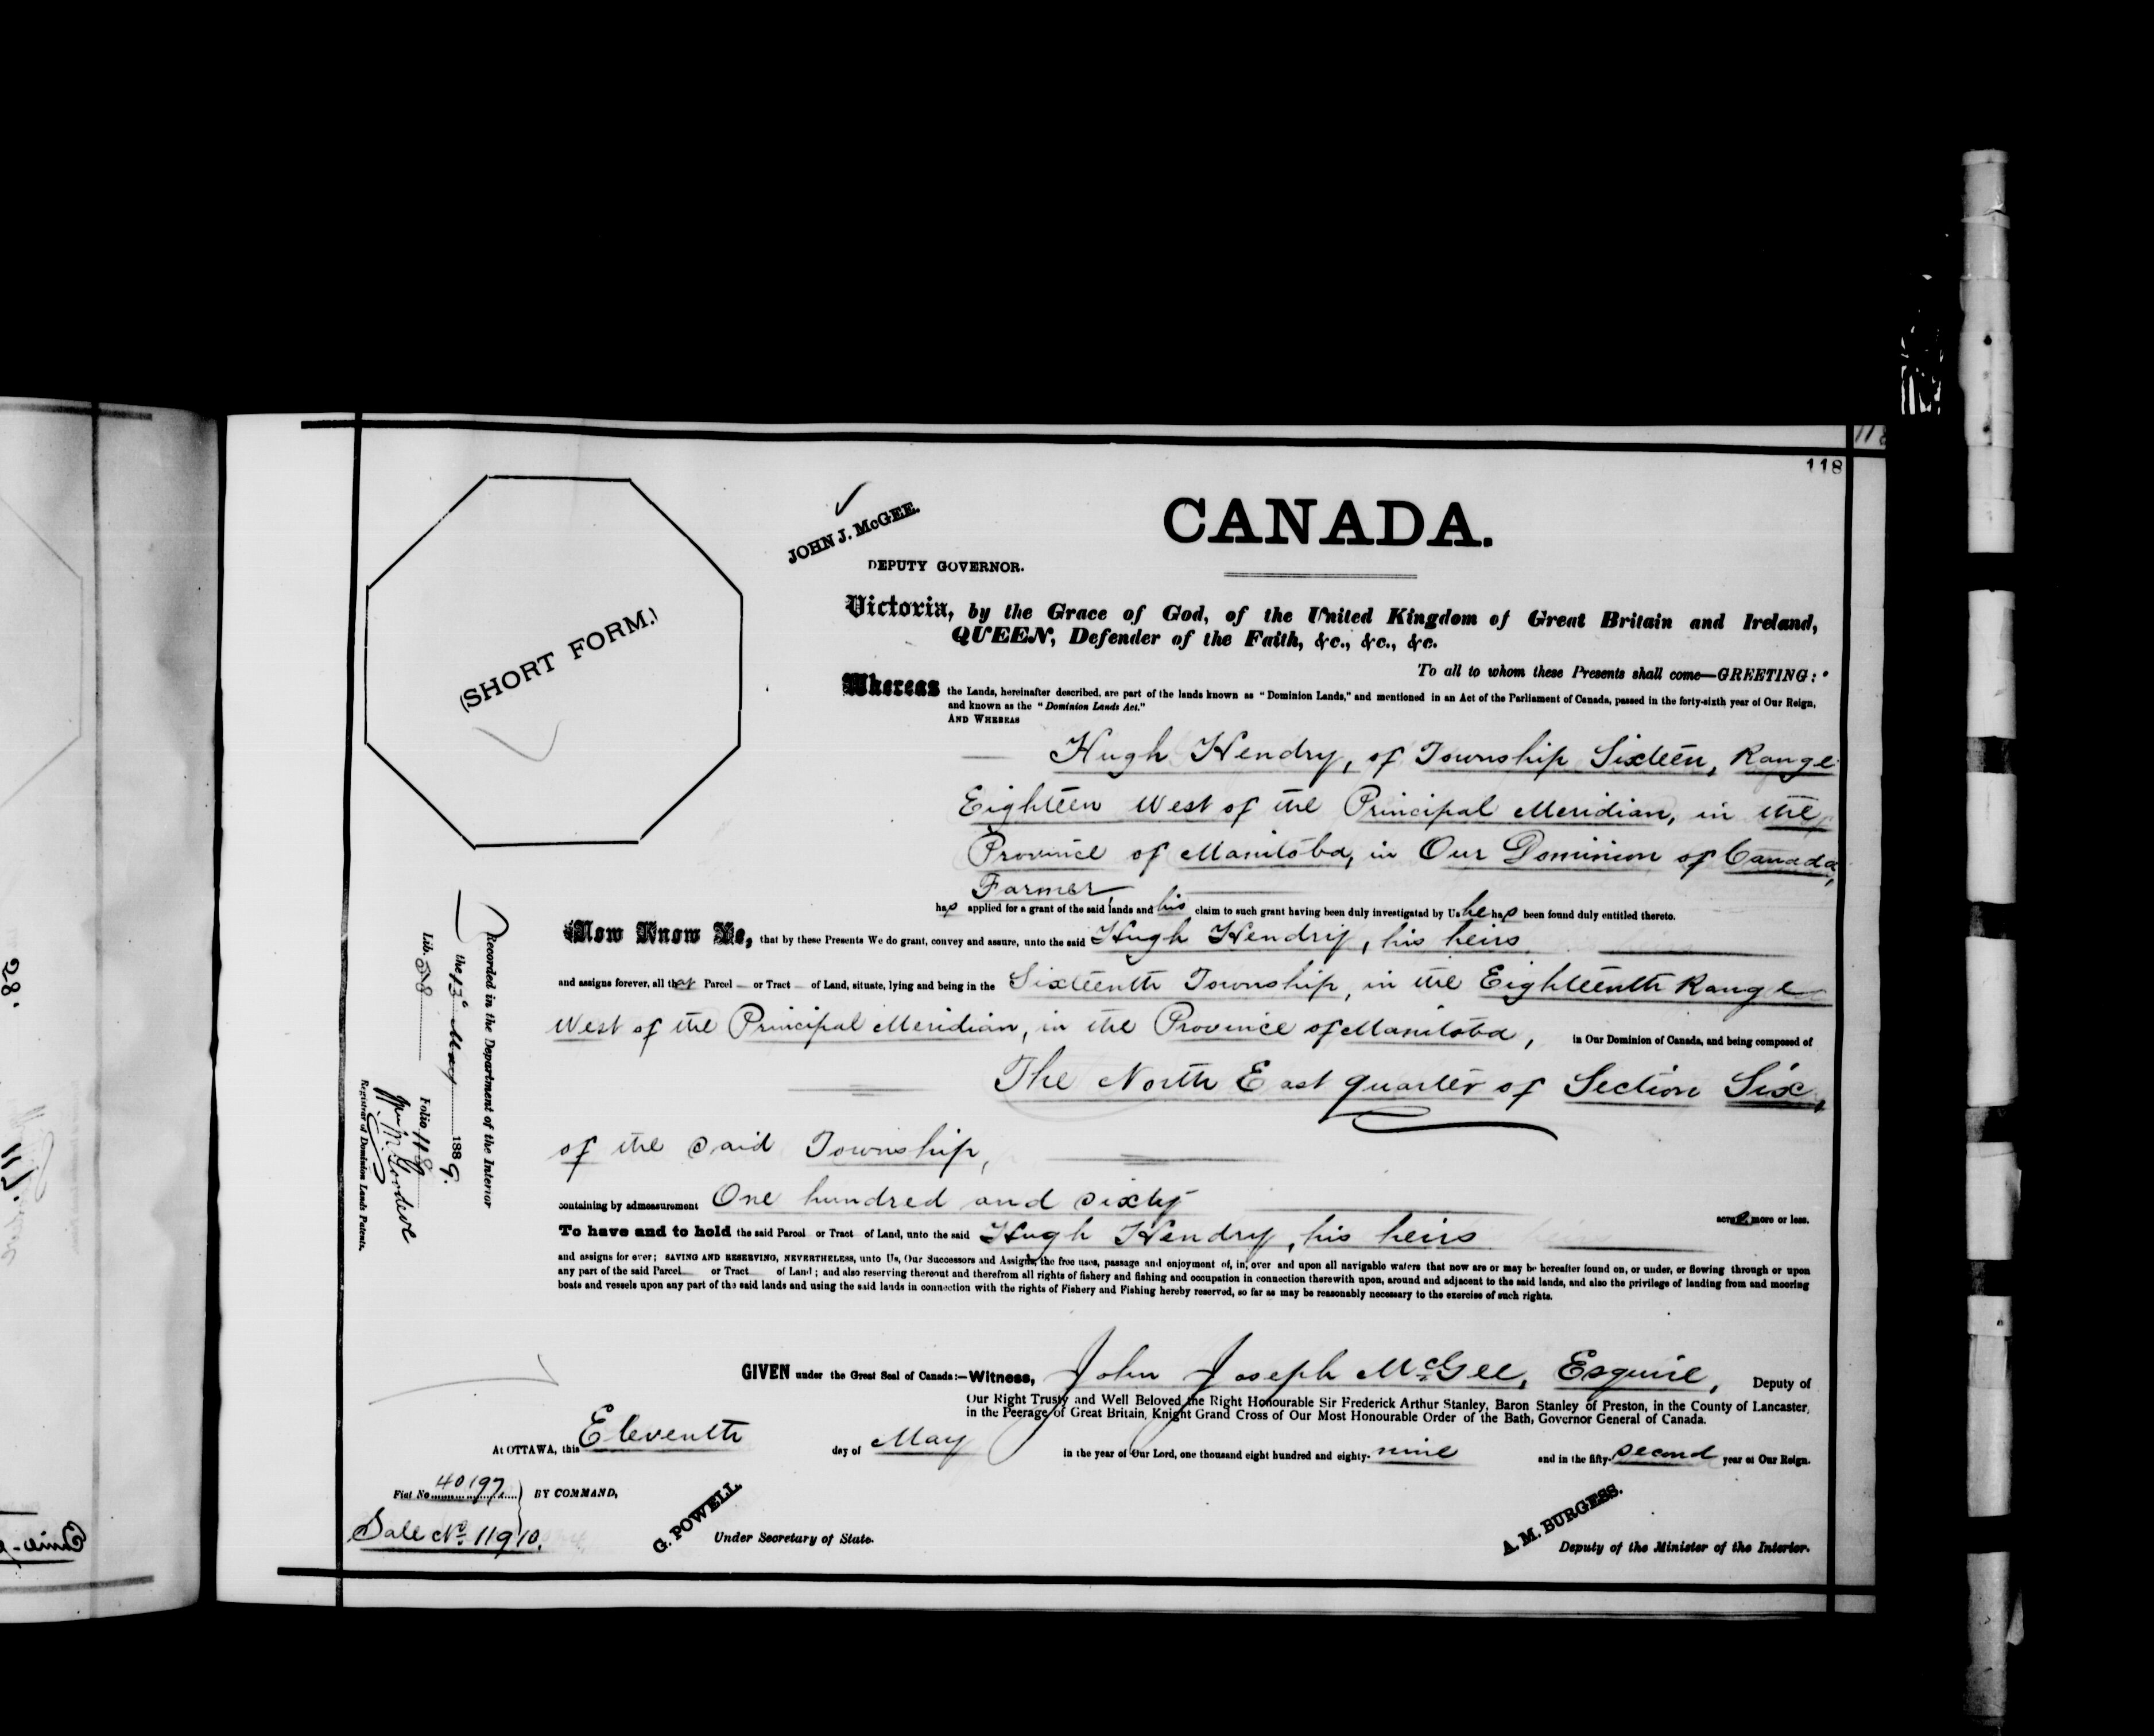 118
118
CANADA.
JOHN J. McGEE.
DEPUTY GOVERNOR.
(SHORT FORM.)
Victoria, by the Grace of God, of the United Kingdom of Great Britain and Ireland,
QUEEN, Defender of the Faith, &c., &c., &c.
To all to whom these Presents shall come—GREETING:
Whereas the Lands, hereinafter described, are part of the lands known as "Dominion Lands," and mentioned in an Act of the Parliament of Canada, passed in the forty-sixth year of Our Reign,
and known as the "Dominion Lands Act."
AND WHEREAS
Hugh Hendry, of Township Sixteen, Range
Eighteen West of the Principal Meridian, in the
Province of Manitoba, in Our Dominion of Canada,
Farmer,
has applied for a grant of the said lands and his claim to such grant having been duly investigated by Us he has been found duly entitled thereto.
Now Know Ye, that by these Presents We do grant, convey and assure, unto the said Hugh Hendry, his heirs
and assigns forever, all that Parcel or Tract of Land, situate, lying and being in the Sixteenth Township, in the Eighteenth Range
West of the Principal Meridian, in the Province of Manitoba, in Our Dominion of Canada, and being composed of
The North East quarter of Section Six,
of the said Township,
containing by admeasurement One hundred and sixty acres more or less.
To have and to hold the said Parcel or Tract of Land, unto the said Hugh Hendry, his heirs
and assigns for ever; SAVING AND RESERVING, NEVERTHELESS, unto Us, Our Successors and Assigns, the free uses, passage and enjoyment of, in, over and upon all navigable waters that now are or may be hereafter found on, or under, or flowing through or upon
any part of the said Parcel or Tract of Land; and also reserving thereout and therefrom all rights of fishery and fishing and occupation in connection therewith upon, around and adjacent to the said lands, and also the privilege of landing from and mooring
boats and vessels upon any part of the said lands and using the said lands in connection with the rights of Fishery and Fishing hereby reserved, so far as may be reasonably necessary to the exercise of such rights.
GIVEN under the Great Seal of Canada:—Witness, John Joseph McGee, Esquire, Deputy of
Our Right Trusty and Well Beloved the Right Honourable Sir Frederick Arthur Stanley, Baron Stanley of Preston, in the County of Lancaster,
in the Peerage of Great Britain, Knight Grand Cross of Our Most Honourable Order of the Bath, Governor General of Canada.
At OTTAWA, this Eleventh day of May in the year of Our Lord, one thousand eight hundred and eighty-nine and in the fifty-second year of Our Reign.
Fiat No. 40197 } BY COMMAND,
Sale No. 11910.
G. POWELL,
Under Secretary of State.
A. M. BURGESS.
Deputy of the Minister of the Interior.
Recorded in the Department of the Interior
the 13th May 1889.
Lib. 58 Folio 118
Wm M. Goodeve
Registrar of Dominion Lands Patents.
28.